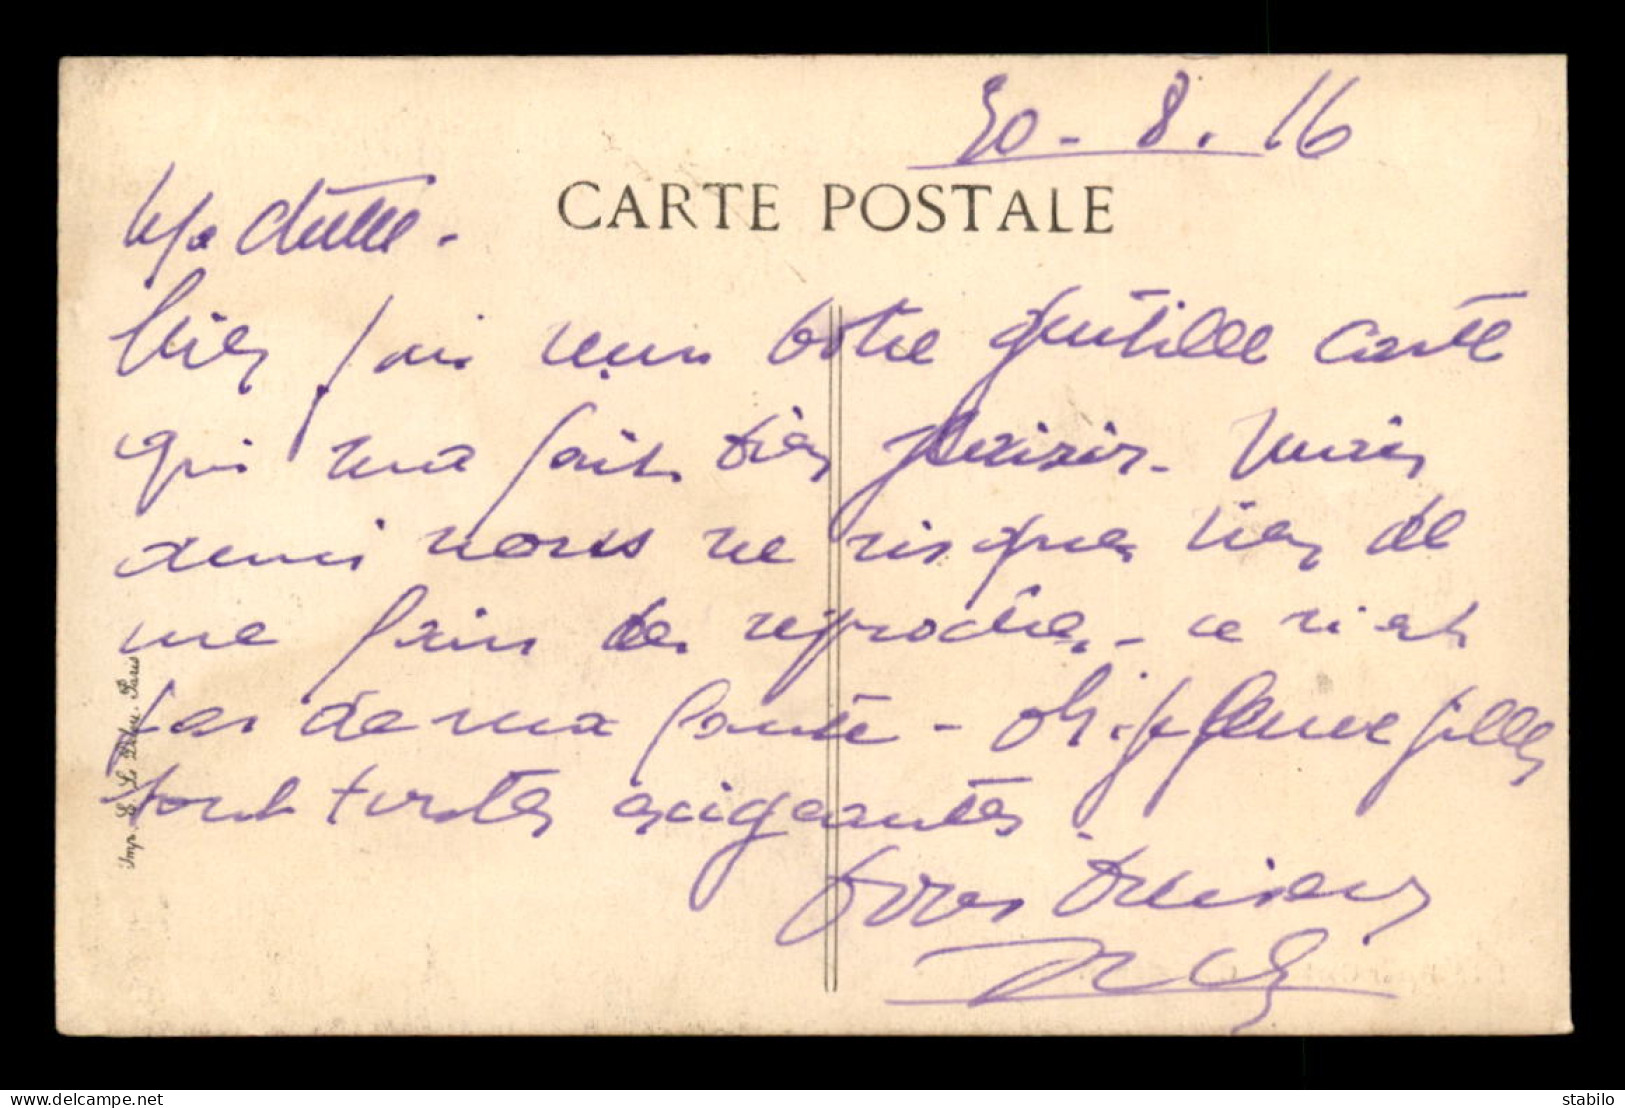 30 - 8. 16
CARTE POSTALE
Ma chère -
Hier j'ai reçu votre gentille carte
qui m'a fait bien plaisir - mais
aussi vous ne risquez rien de
me faire des reproches - ce n'est
pas de ma faute - oh ! jeunes filles
sont toutes exigeantes.
Gros baisers
Imp. E. Le Deley. Paris
delcampe.net
stabilo